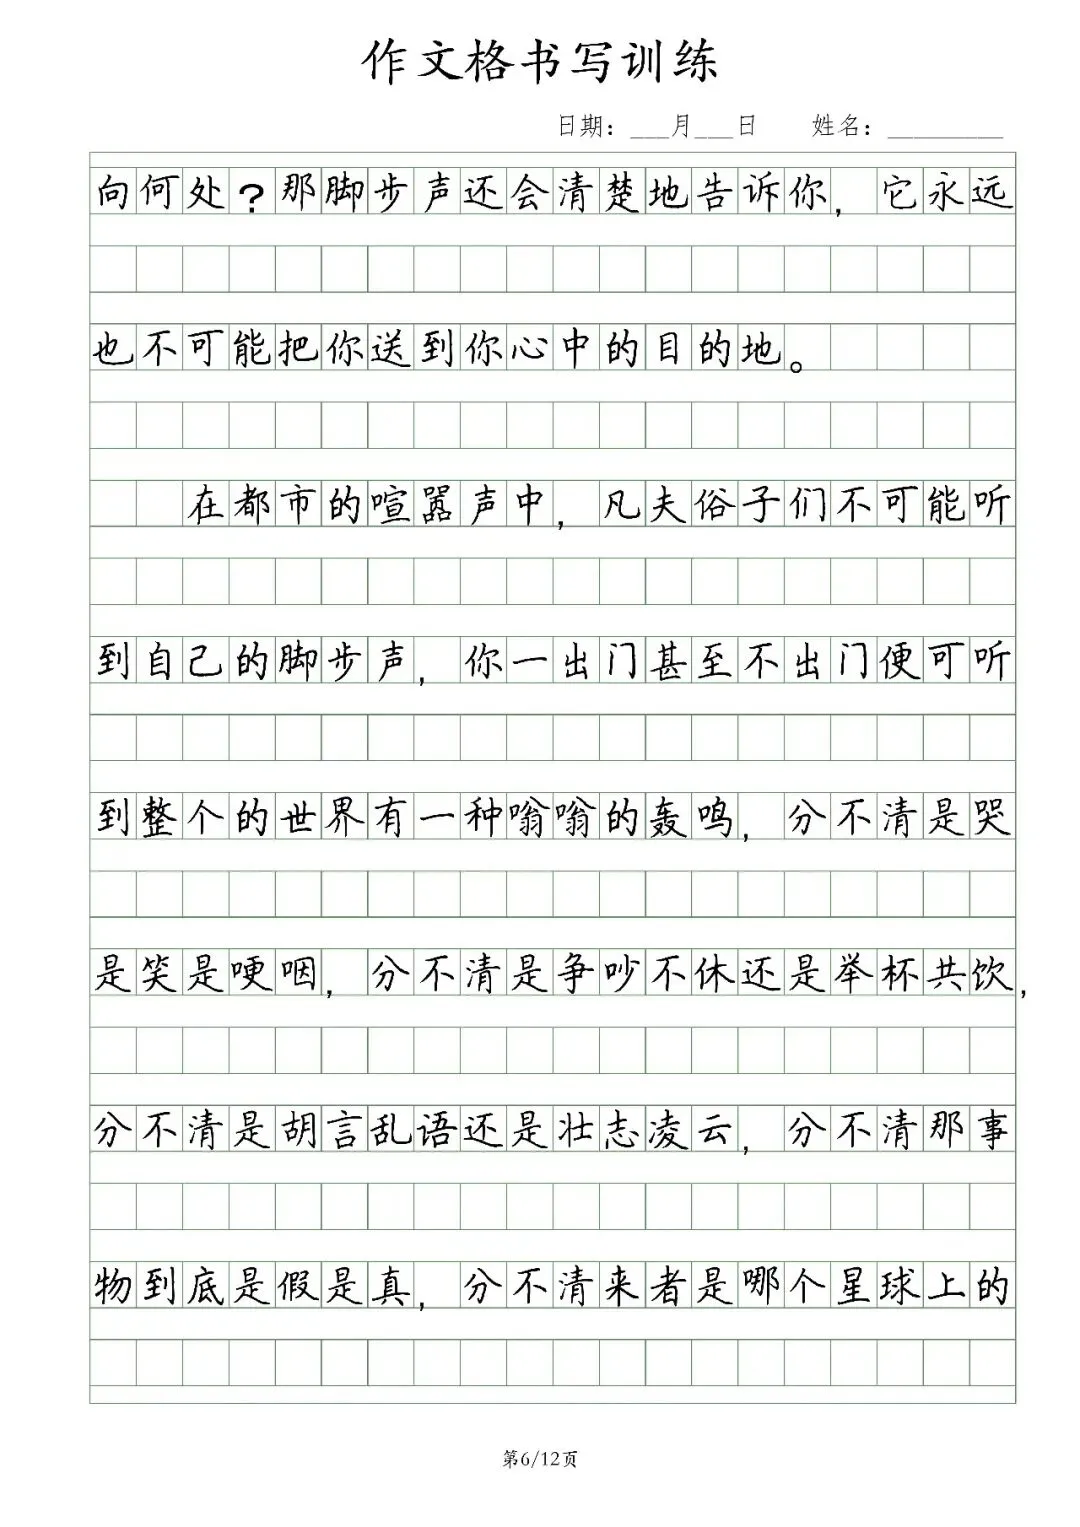 作文格书写训练
日期：___月___日 姓名：_________
向何处？那脚步声还会清楚地告诉你，它永远
也不可能把你送到你心中的目的地。
在都市的喧嚣声中，凡夫俗子们不可能听
到自己的脚步声，你一出门甚至不出门便可听
到整个的世界有一种嗡嗡的轰鸣，分不清是哭
是笑是哽咽，分不清是争吵不休还是举杯共饮，
分不清是胡言乱语还是壮志凌云，分不清那事
物到底是假是真，分不清来者是哪个星球上的
第6/12页